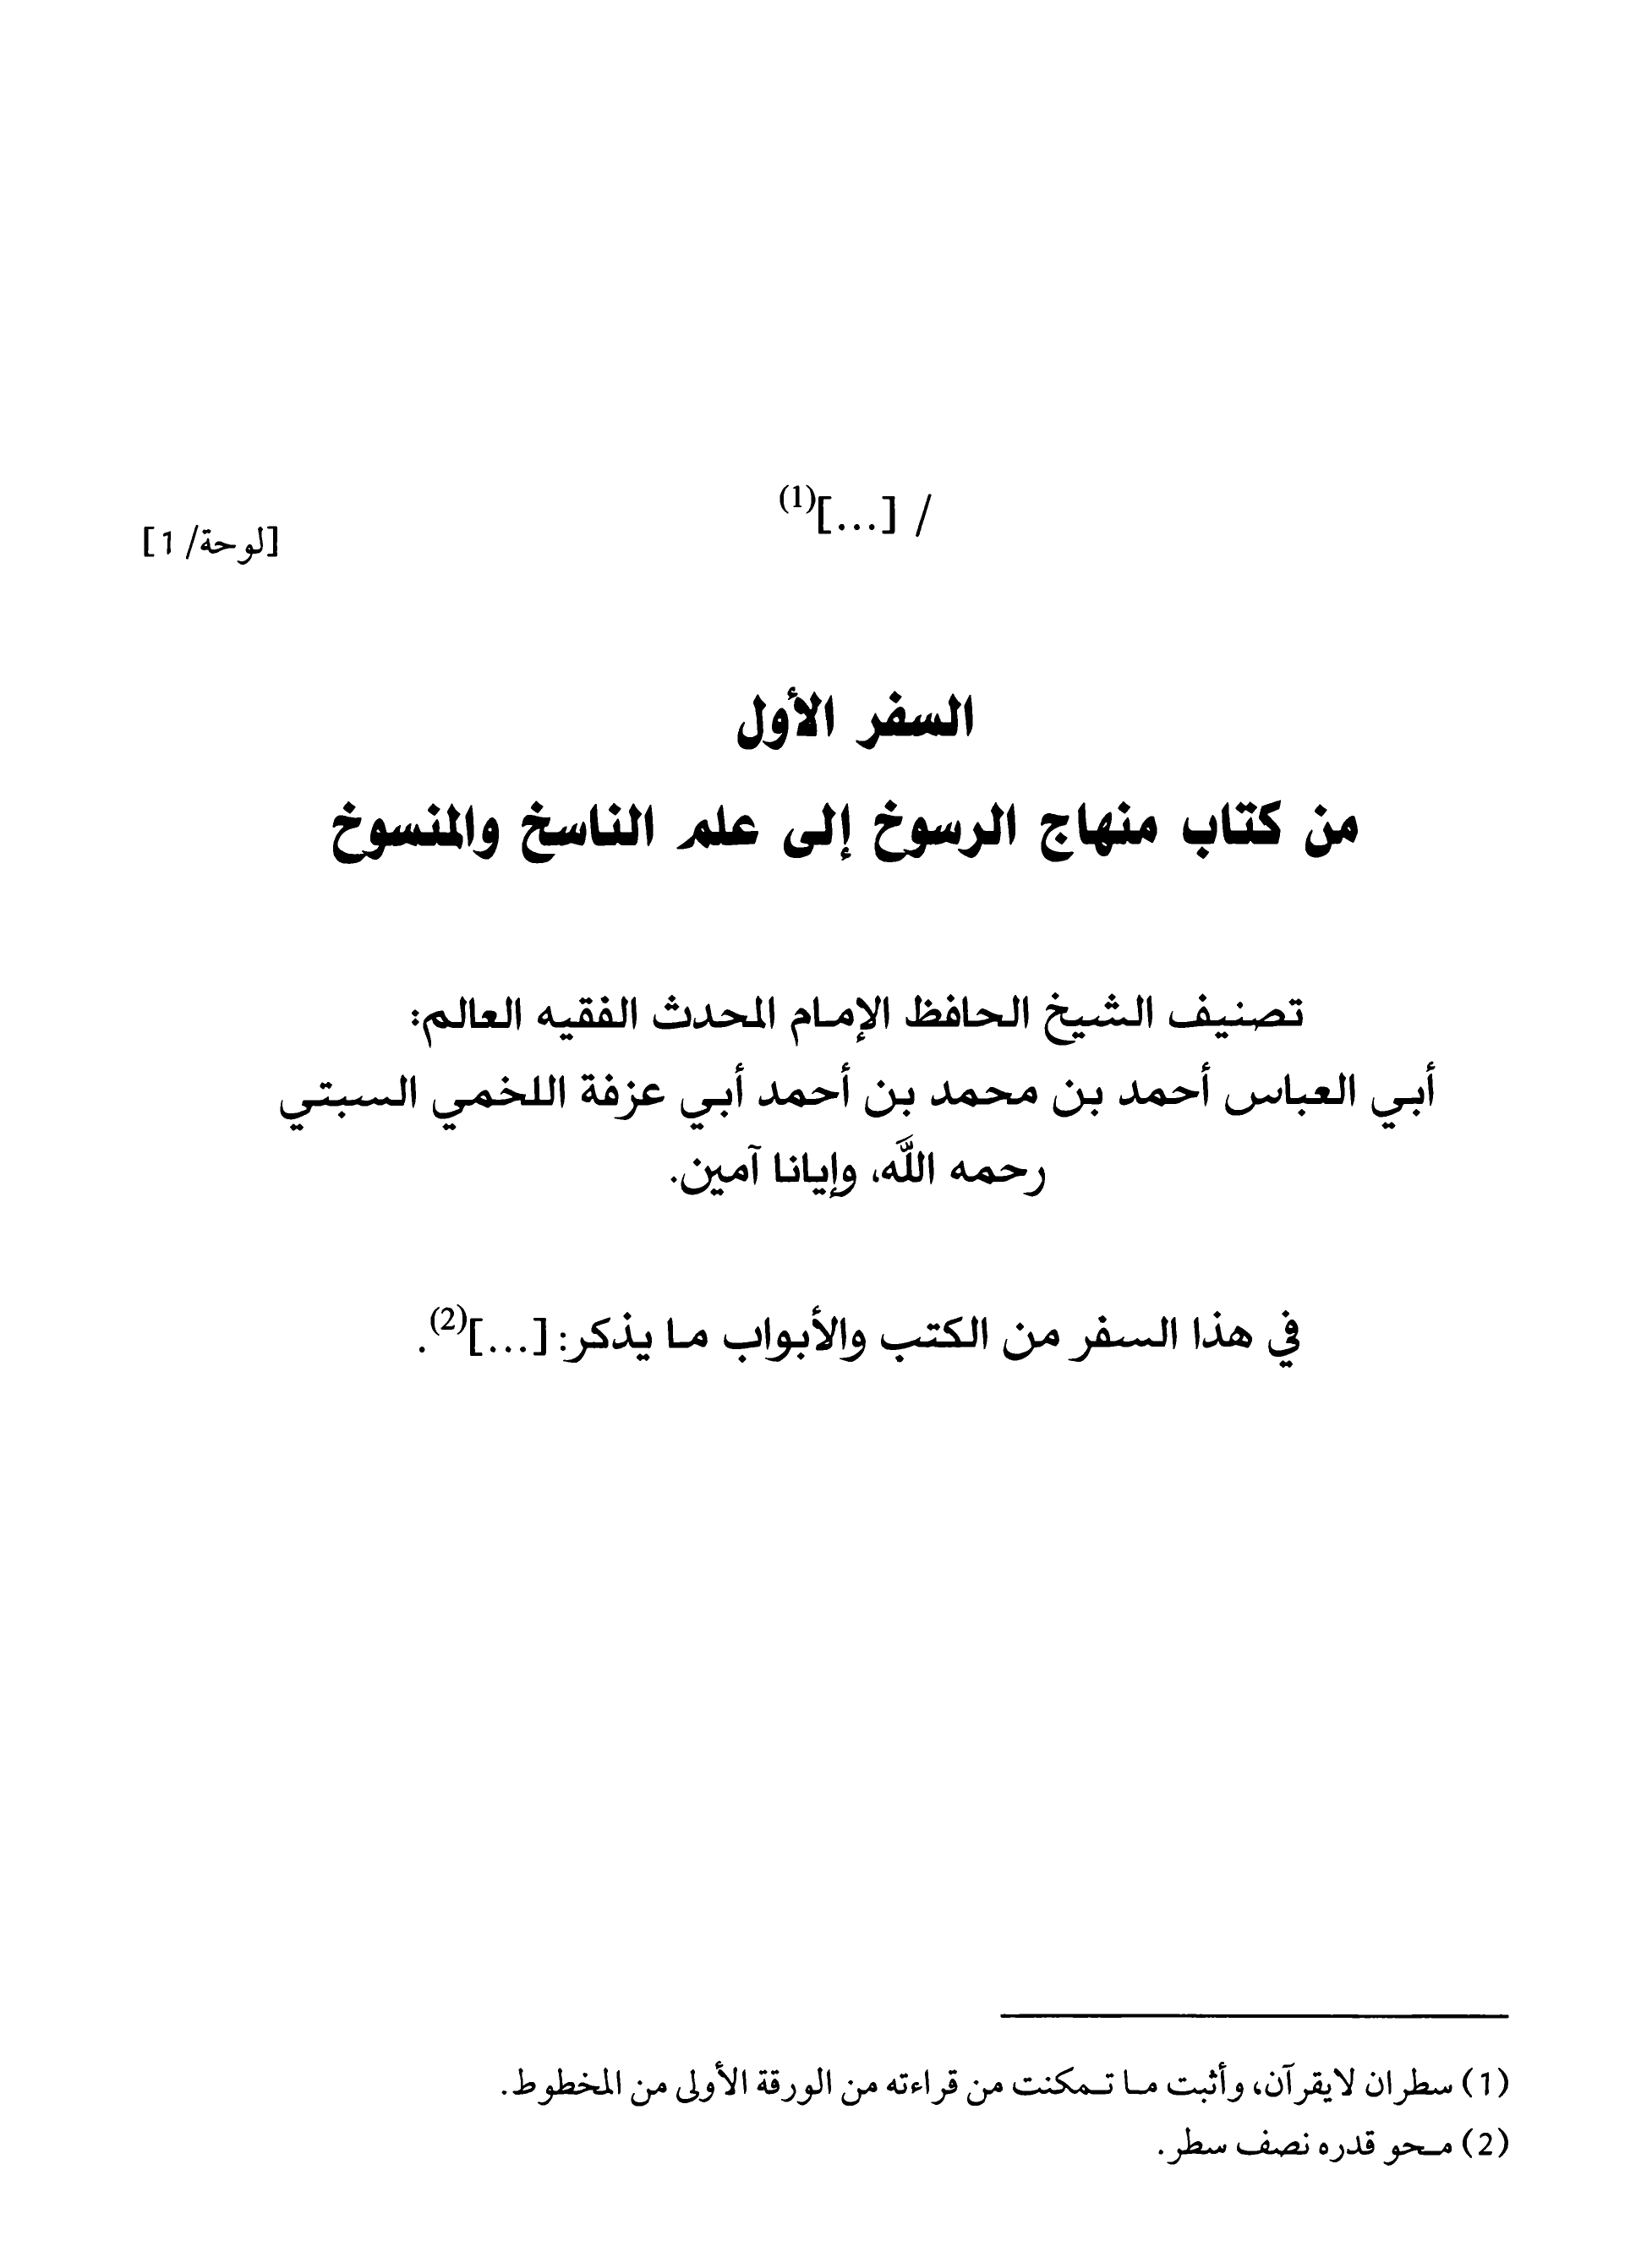 / [...](1)
[لوحة/ 1]
السفر الأول
من كتاب منهاج الرسوخ إلى علم الناسخ والمنسوخ
تصنيف الشيخ الحافظ الإمام المحدث الفقيه العالم:
أبي العباس أحمد بن محمد بن أحمد أبي عزفة اللخمي السبتي
رحمه اللَّه، وإيانا آمين.
في هذا السفر من الكتب والأبواب ما يذكر: [...](2).
(1) سطران لايقرآن، وأثبت ما تمكنت من قراءته من الورقة الأولى من المخطوط.
(2) محو قدره نصف سطر.